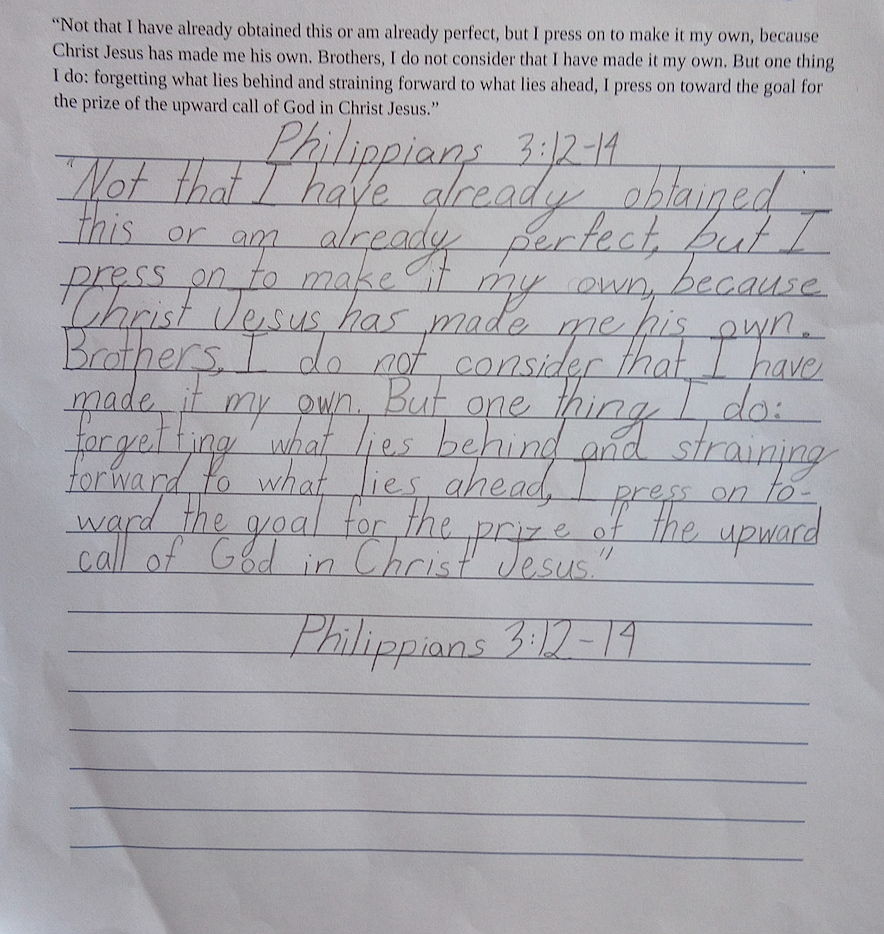 “Not that I have already obtained this or am already perfect, but I press on to make it my own, because
Christ Jesus has made me his own. Brothers, I do not consider that I have made it my own. But one thing
I do: forgetting what lies behind and straining forward to what lies ahead, I press on toward the goal for
the prize of the upward call of God in Christ Jesus.”
Philippians 3:12-14
"Not that I have already obtained
this or am already perfect, but I
press on to make it my own, because
Christ Jesus has made me his own.
Brothers, I do not consider that I have
made it my own. But one thing I do:
forgetting what lies behind and straining
forward to what lies ahead, I press on to-
ward the goal for the prize of the upward
call of God in Christ Jesus."
Philippians 3:12-14